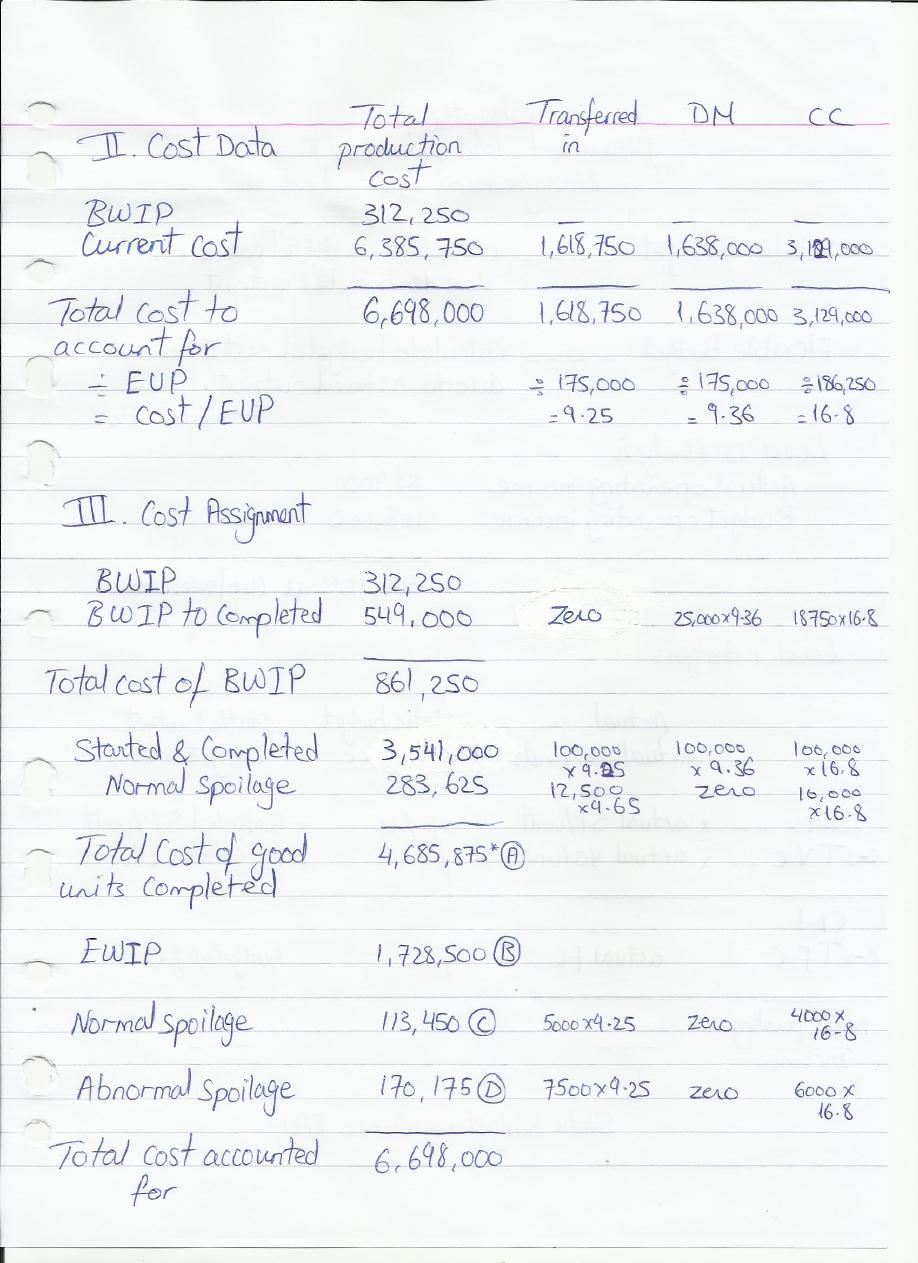 Total Transferred DM CC
II. Cost Data production in
cost
BWIP 312,250 — — —
Current cost 6,385,750 1,618,750 1,638,000 3,129,000
Total cost to 6,698,000 1,618,750 1,638,000 3,129,000
account for
÷ EUP ÷ 175,000 ÷ 175,000 ÷ 186,250
= cost/EUP = 9.25 = 9.36 = 16.8
III. Cost Assignment
BWIP 312,250
BWIP to Completed 549,000 Zero 25,000x9.36 18750x16.8
Total cost of BWIP 861,250
Started & Completed 3,541,000 100,000 100,000 100,000
x9.25 x9.36 x16.8
Normal Spoilage 283,625 12,500 zero 10,000
x9.65 x16.8
Total Cost of good 4,685,875* Ⓐ
units completed
EWIP 1,728,500 Ⓑ
Normal Spoilage 113,450 Ⓒ 5000x9.25 zero 4000x
16.8
Abnormal Spoilage 170,175 Ⓓ 7500x9.25 zero 6000x
16.8
Total cost accounted 6,698,000
for